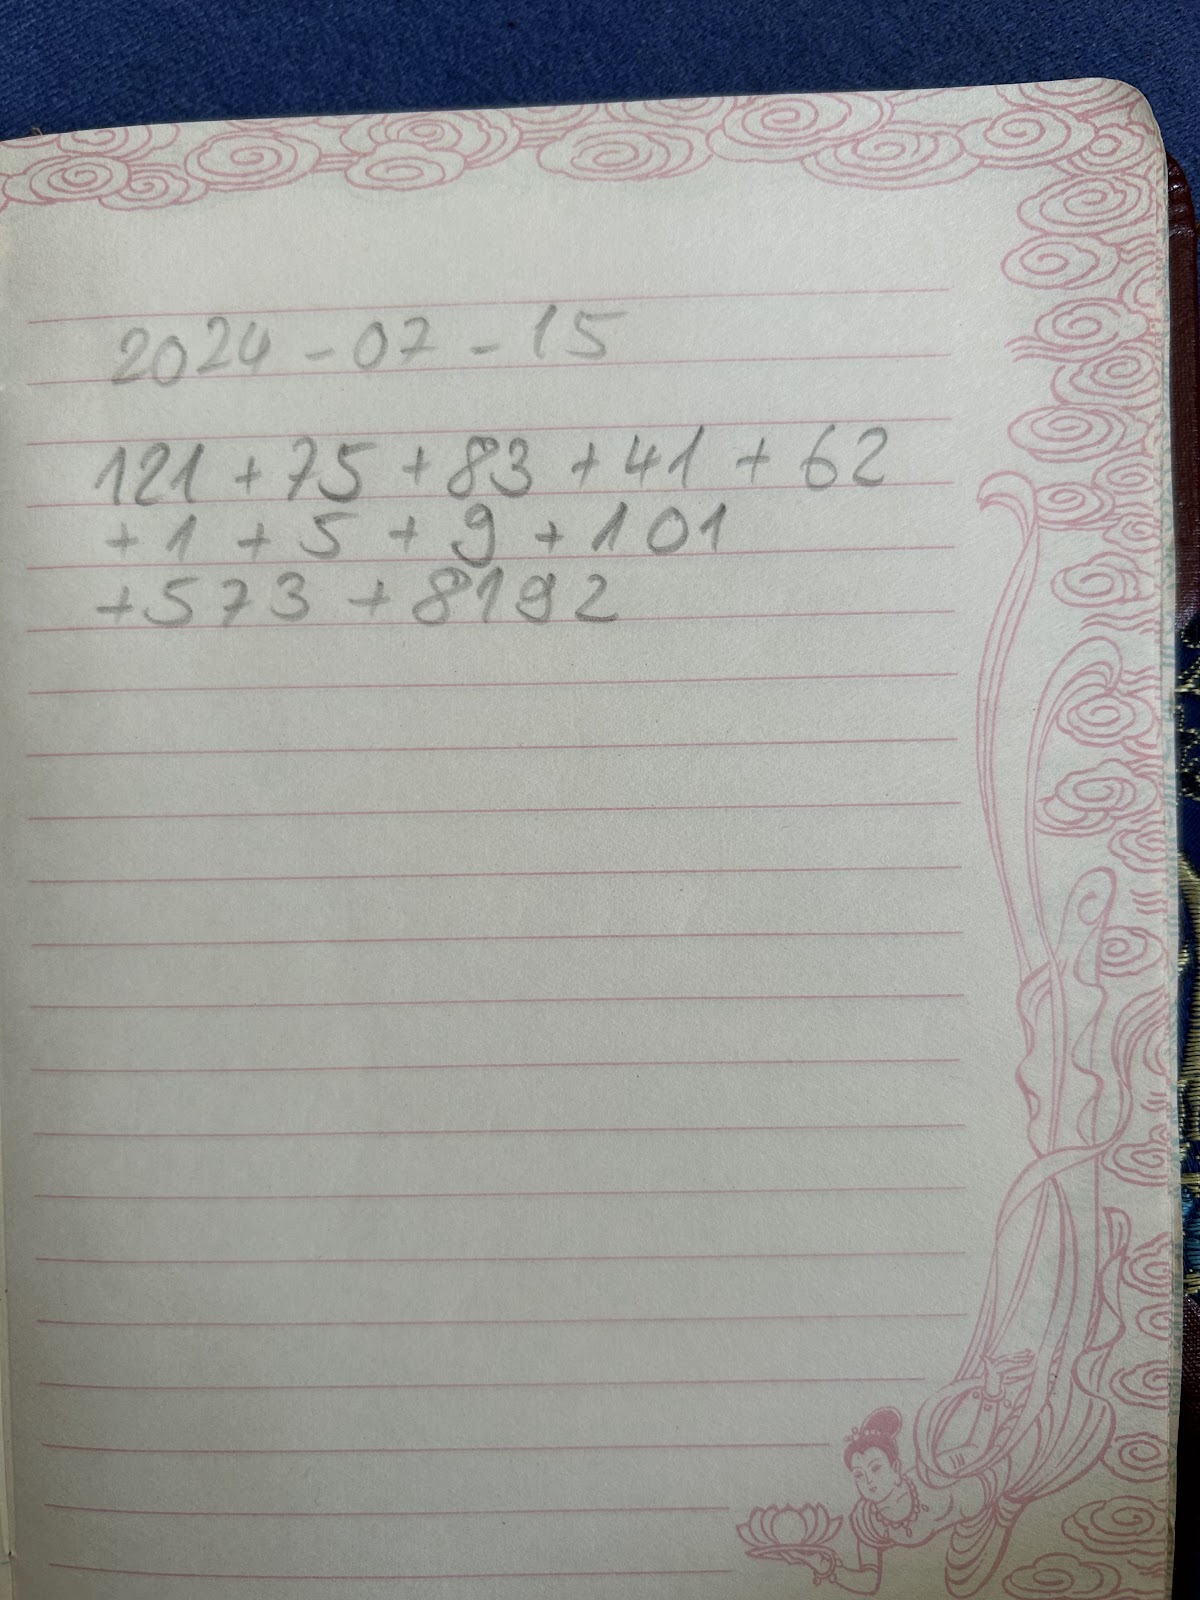 2024-07-15
121+75+83+41+62
+1+5+9+101
+573+8192